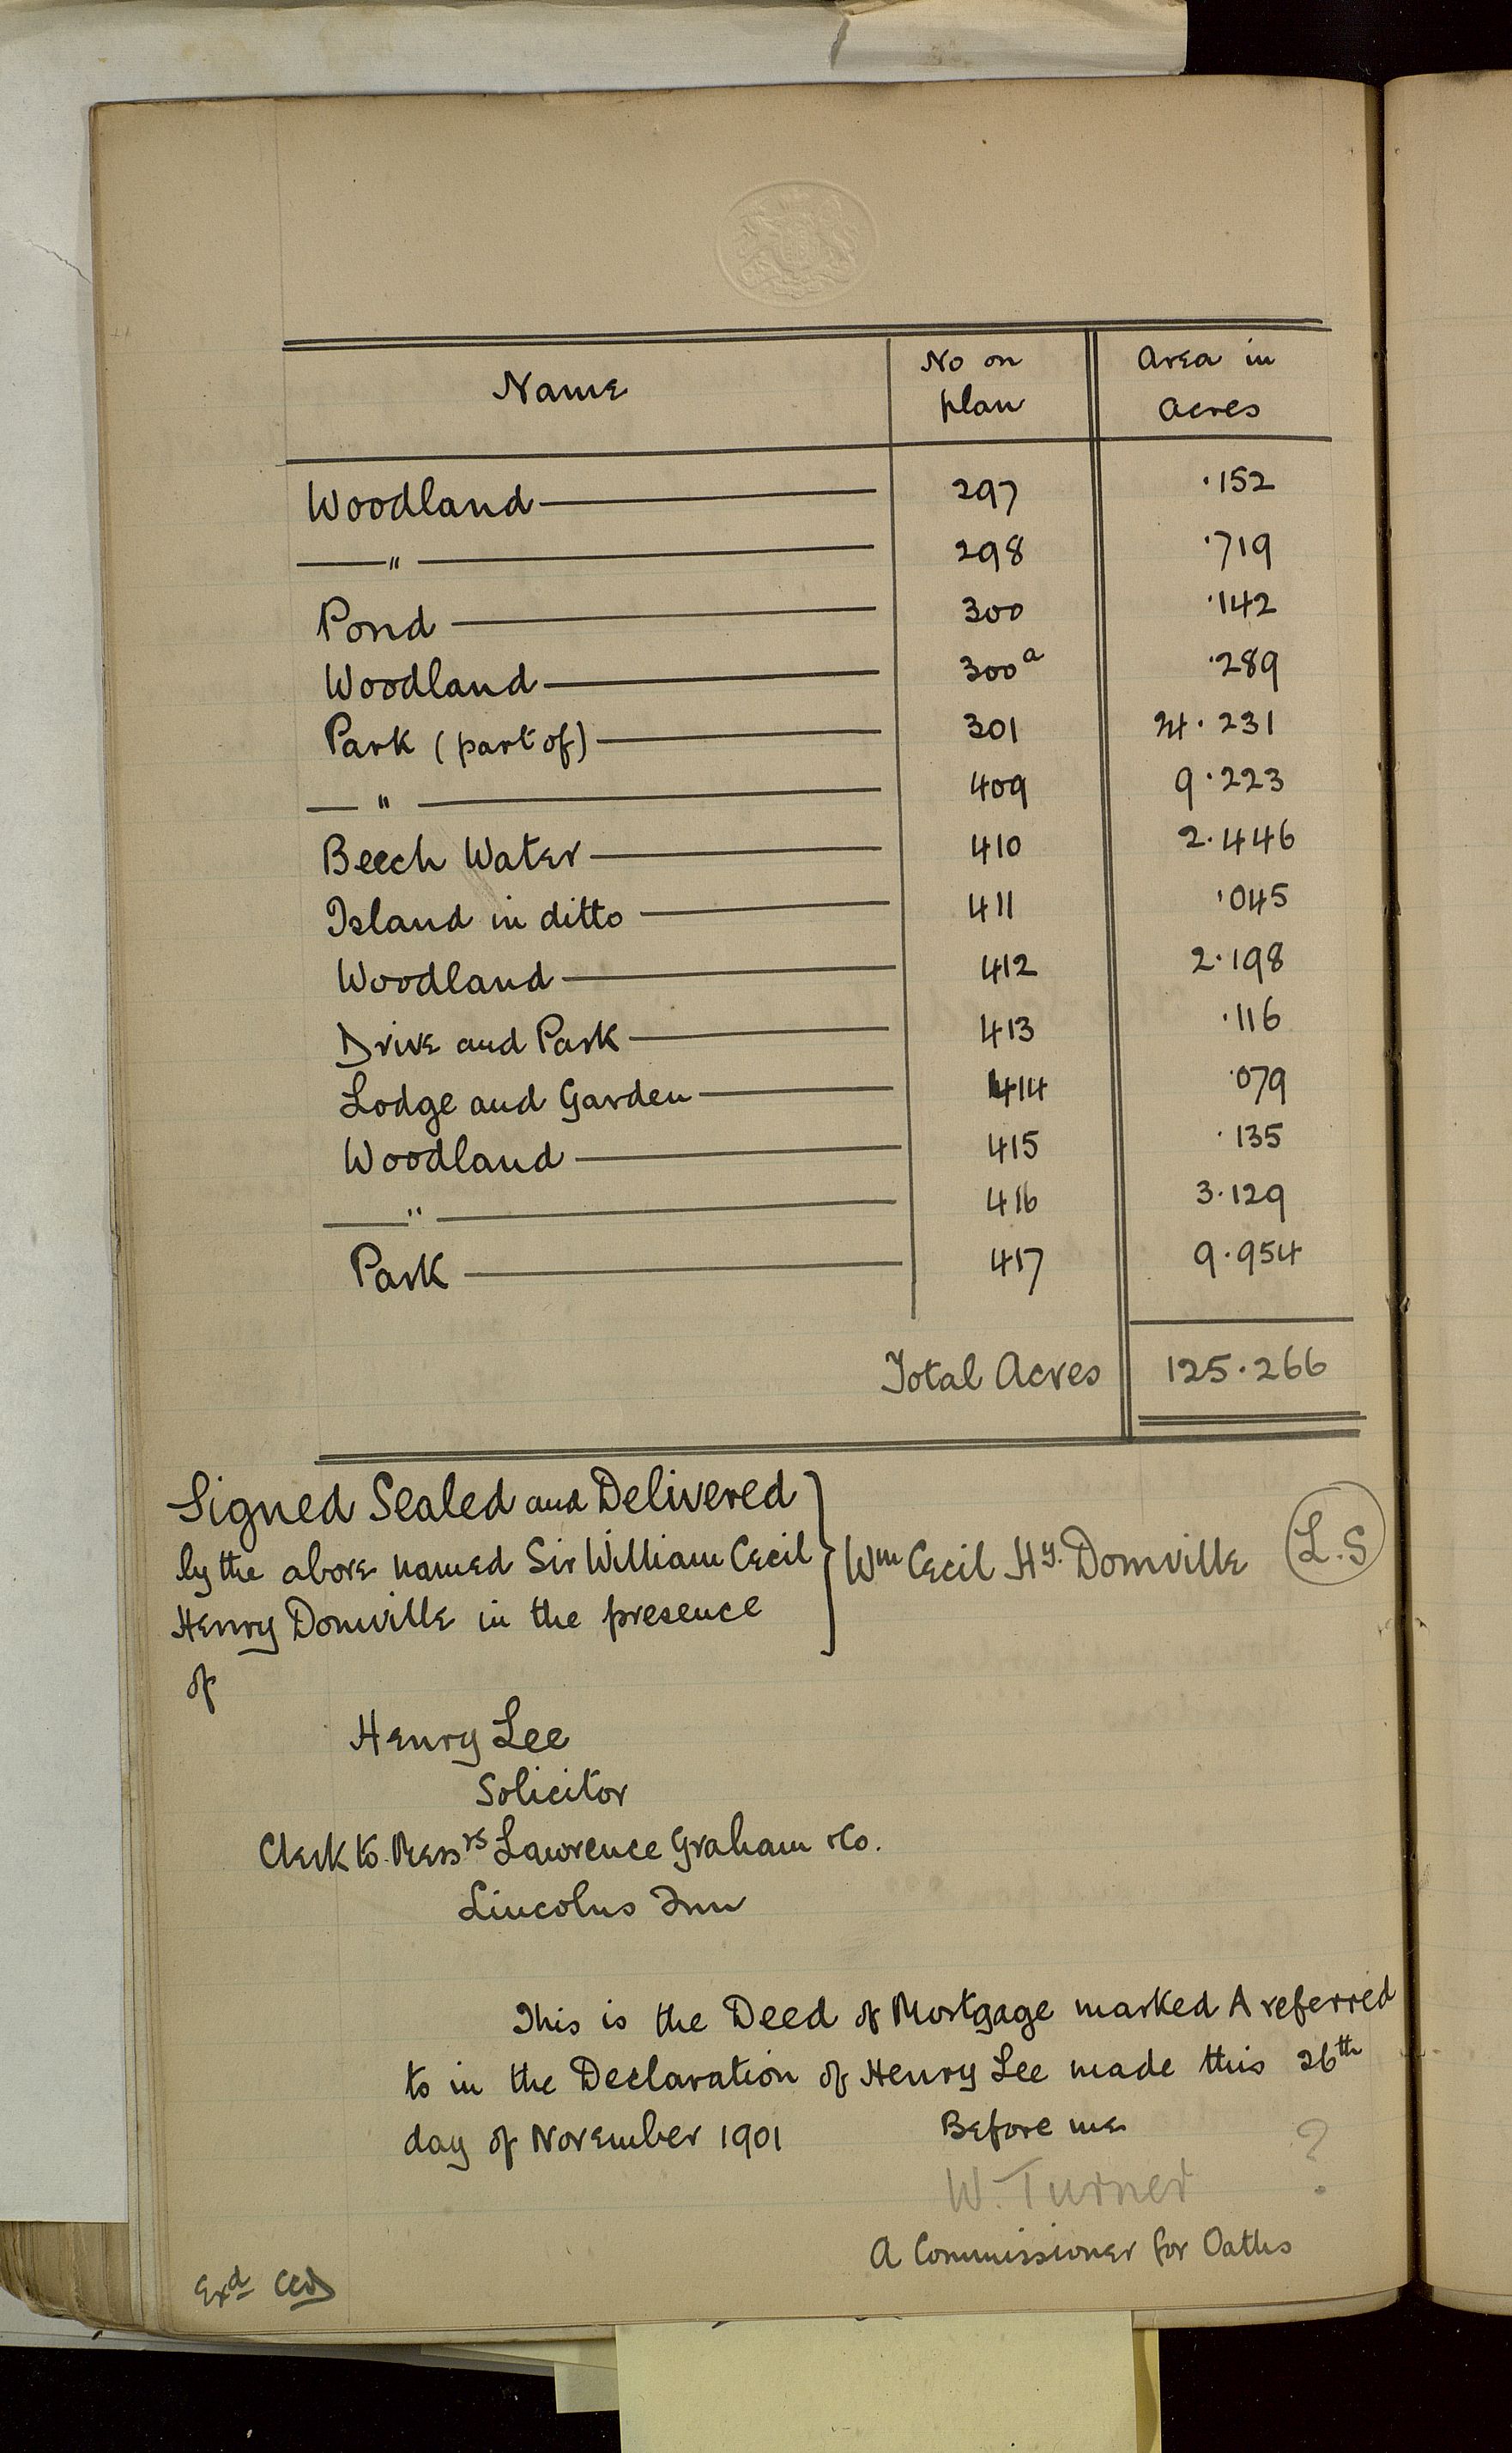 Name No on plan Area in acres
Woodland 297 ·152
" 298 ·719
Pond 300 ·142
Woodland 300a ·289
Park (part of) 301 24·231
" 409 9·223
Beech Water 410 2·446
Island in ditto 411 ·045
Woodland 412 2·198
Drive and Park 413 ·116
Lodge and Garden 414 ·079
Woodland 415 ·135
" 416 3·129
Park 417 9·954
Total Acres 125·266
Signed Sealed and Delivered
by the above named Sir William Cecil
Henry Domville in the presence
of
Wm Cecil Hy. Domville L.S
Henry Lee
Solicitor
Clerk to Messrs Lawrence Graham & Co.
Lincolns Inn
This is the Deed of Mortgage marked A referred
to in the Declaration of Henry Lee made this 26th
day of November 1901 Before me
W. Turner ?
A Commissioner for Oaths
Exd